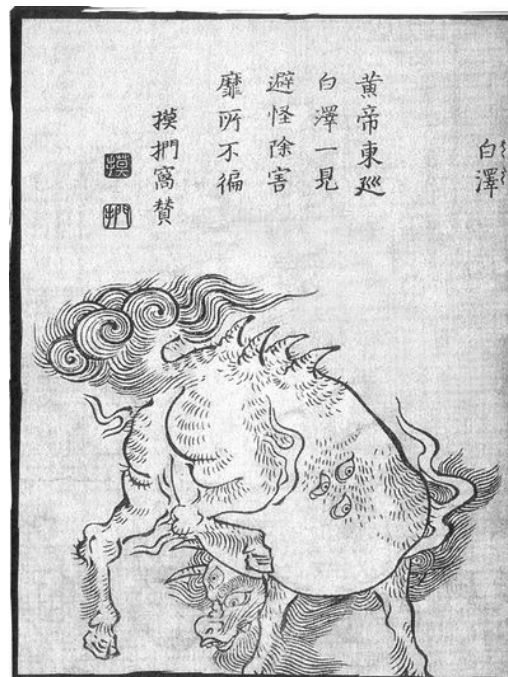 白澤
黄帝東廵
白澤一見
避怪除害
靡所不徧
摸捫窩賛
摸
捫